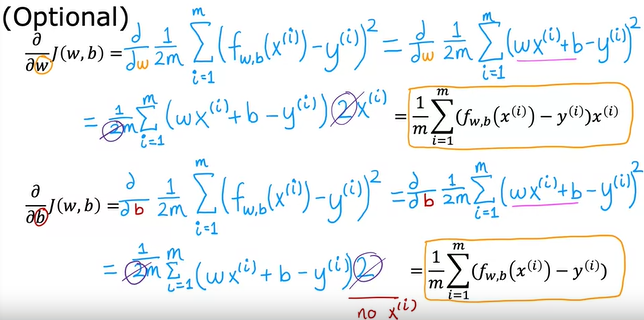 (Optional)
∂/∂w J(w,b) = d/dw 1/2m Σ_{i=1}^{m} (f_{w,b}(x^{(i)}) − y^{(i)})² = d/dw 1/2m Σ_{i=1}^{m} (wx^{(i)} + b − y^{(i)})²
= 1/2m Σ_{i=1}^{m} (wx^{(i)} + b − y^{(i)}) 2x^{(i)} = 1/m Σ_{i=1}^{m} (f_{w,b}(x^{(i)}) − y^{(i)})x^{(i)}
∂/∂b J(w,b) = ∂/∂b 1/2m Σ_{i=1}^{m} (f_{w,b}(x^{(i)}) − y^{(i)})² = ∂/∂b 1/2m Σ_{i=1}^{m} (wx^{(i)} + b − y^{(i)})²
= 1/2m Σ_{i=1}^{m} (wx^{(i)} + b − y^{(i)}) 2 = 1/m Σ_{i=1}^{m} (f_{w,b}(x^{(i)}) − y^{(i)})
no x^{(i)}